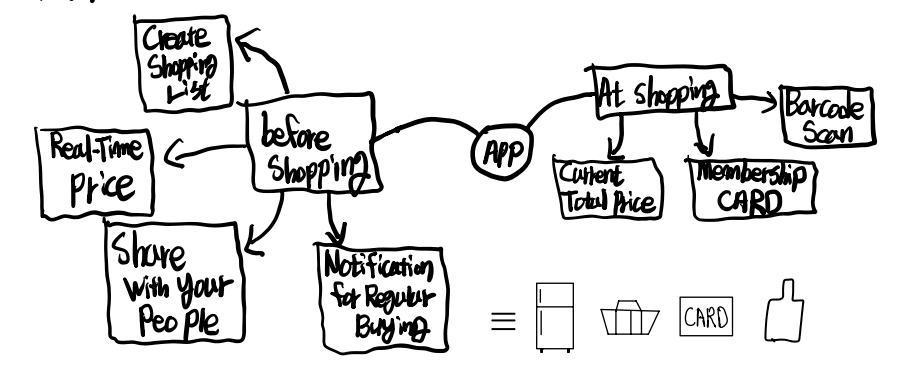 Create
Shopping
List
Real-Time
Price
before
Shopping
Share
With Your
People
Notification
for Regular
Buying
APP
At Shopping
Barcode
Scan
Current
Total Price
Membership
CARD
CARD